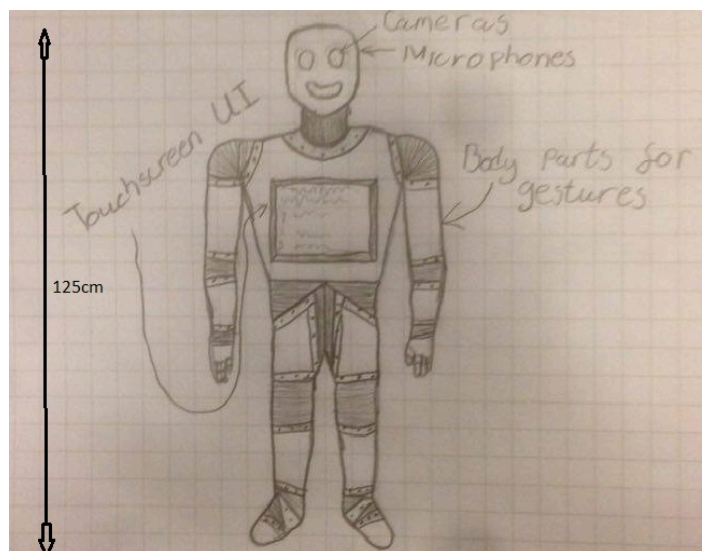 Cameras
Microphones
Touchscreen UI
Body parts for
gestures
125cm